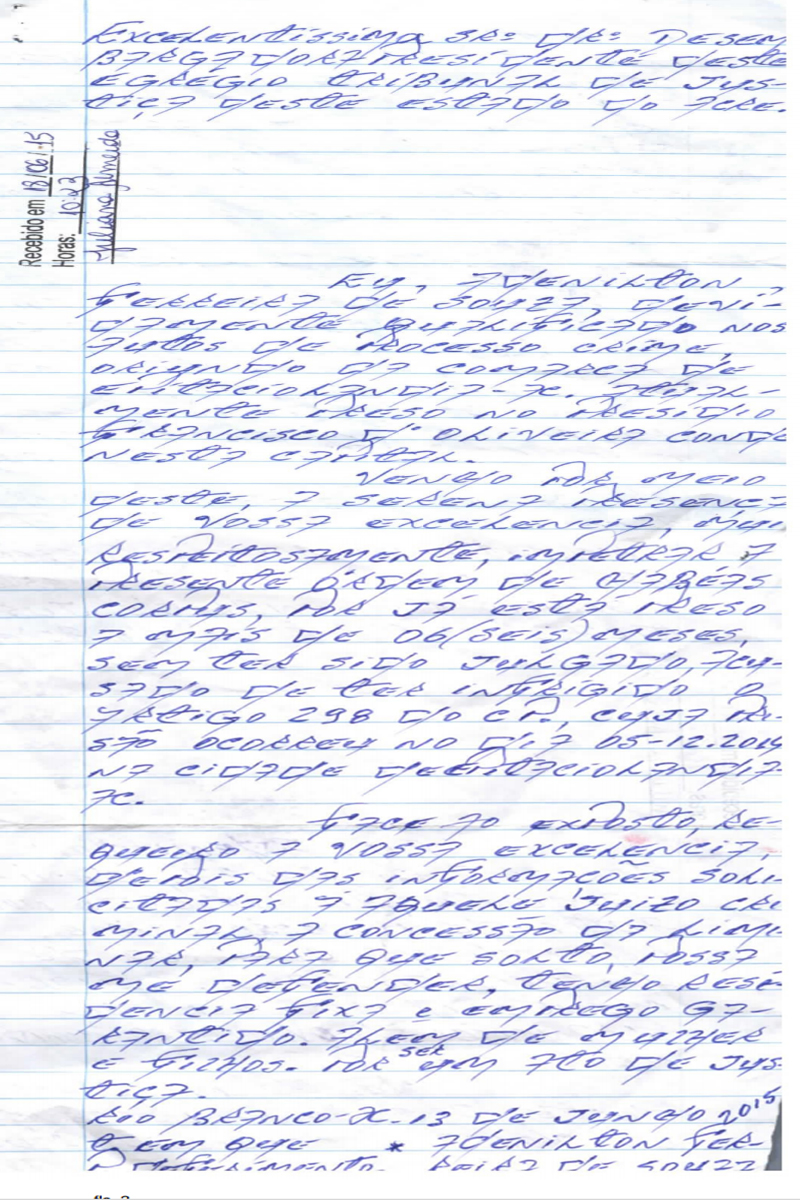 Excelentíssimo Srº Drº Desem
bargador Presidente deste
Egrégio Tribunal de Jus-
tiça deste Estado do Acre.
Recebido em 18/06/15
Horas: 10:23
Juliana Almeida
Eu, Adenilton
Ferreira de Souza, devi-
damente qualificado nos
autos de processo crime,
oriundo da comarca de
Epitaciolandia-AC. Atual-
mente preso no presídio
Francisco D' Oliveira Conde
nesta capital.
Venho por meio
deste, a serena presenç
de Vossa Excelencia, mui
respeitosamente, impetrar a
presente órdem de habéas
corpus, por já está preso
a mais de 06(seis) meses,
sem ter sido julgado, acu-
sado de ter infrigido o
artigo 298 do CP., cuja pri-
são ocorreu no dia 05-12.2014
na cidade de Epitaciolandia-
AC.
Face ao exposto, re-
queiro a Vossa Excelência,
depois das informações soli
citadas a aquele juizo cri
minal, a concessão da limi
nar, para que solto, possa
me defender, tenho resi-
dencia fixa e emprego ga-
rantido. Além de mulher
e filhos. Por ser um ato de jus
tiça.
Rio Branco-AC. 13 de junho 2015
tem que * Adenilton Fer-
P deferimento. reira de Souza
fls. 2